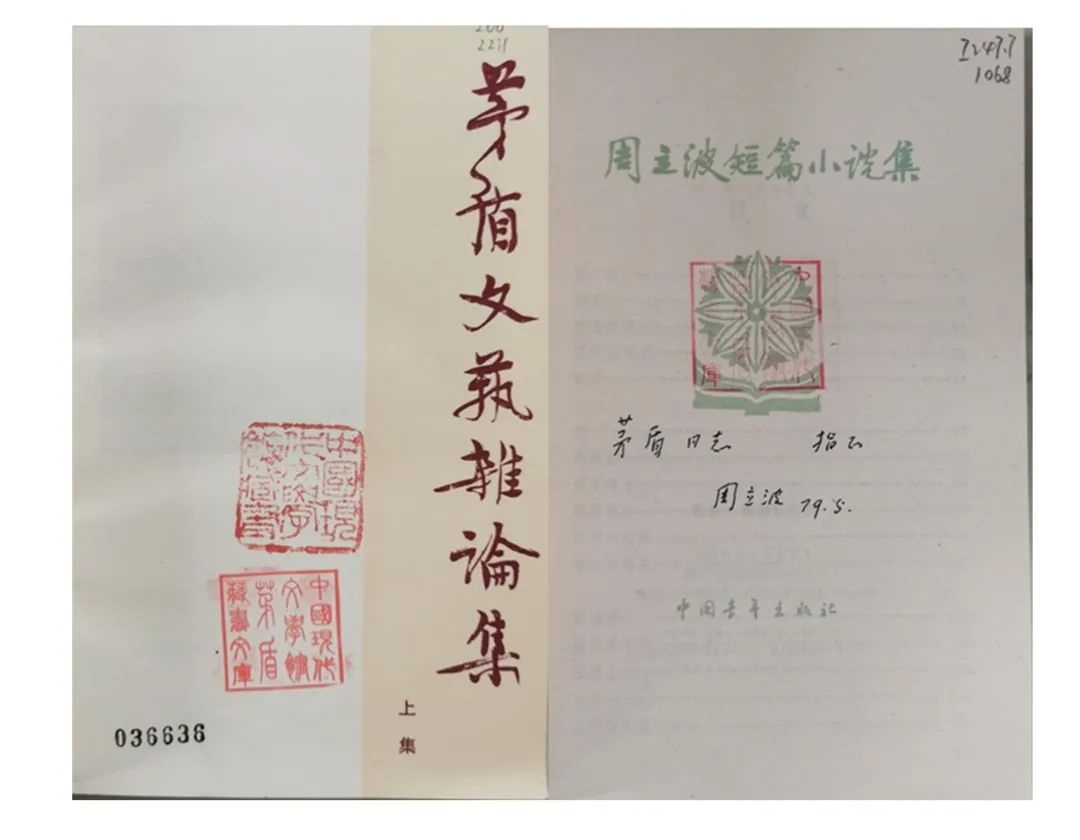 2211
茅盾文艺雜論集
上集
中國現代文學館藏書
中國現代
文學館
茅盾
藏書文庫
036636
I247.7
1068
周立波短篇小说集
茅盾同志 指正
周立波 79.5.
中国青年出版社